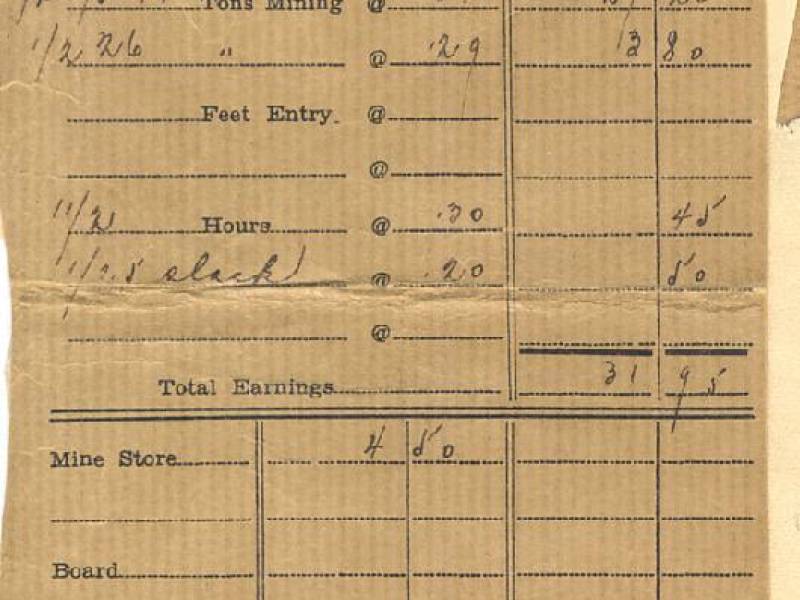 Tons Mining @
1/2 26 " @ .29 3 80
Feet Entry @
@
Hours @ .30 45
slack @ .20 50
@
Total Earnings 31 95
Mine Store 4 50
Board